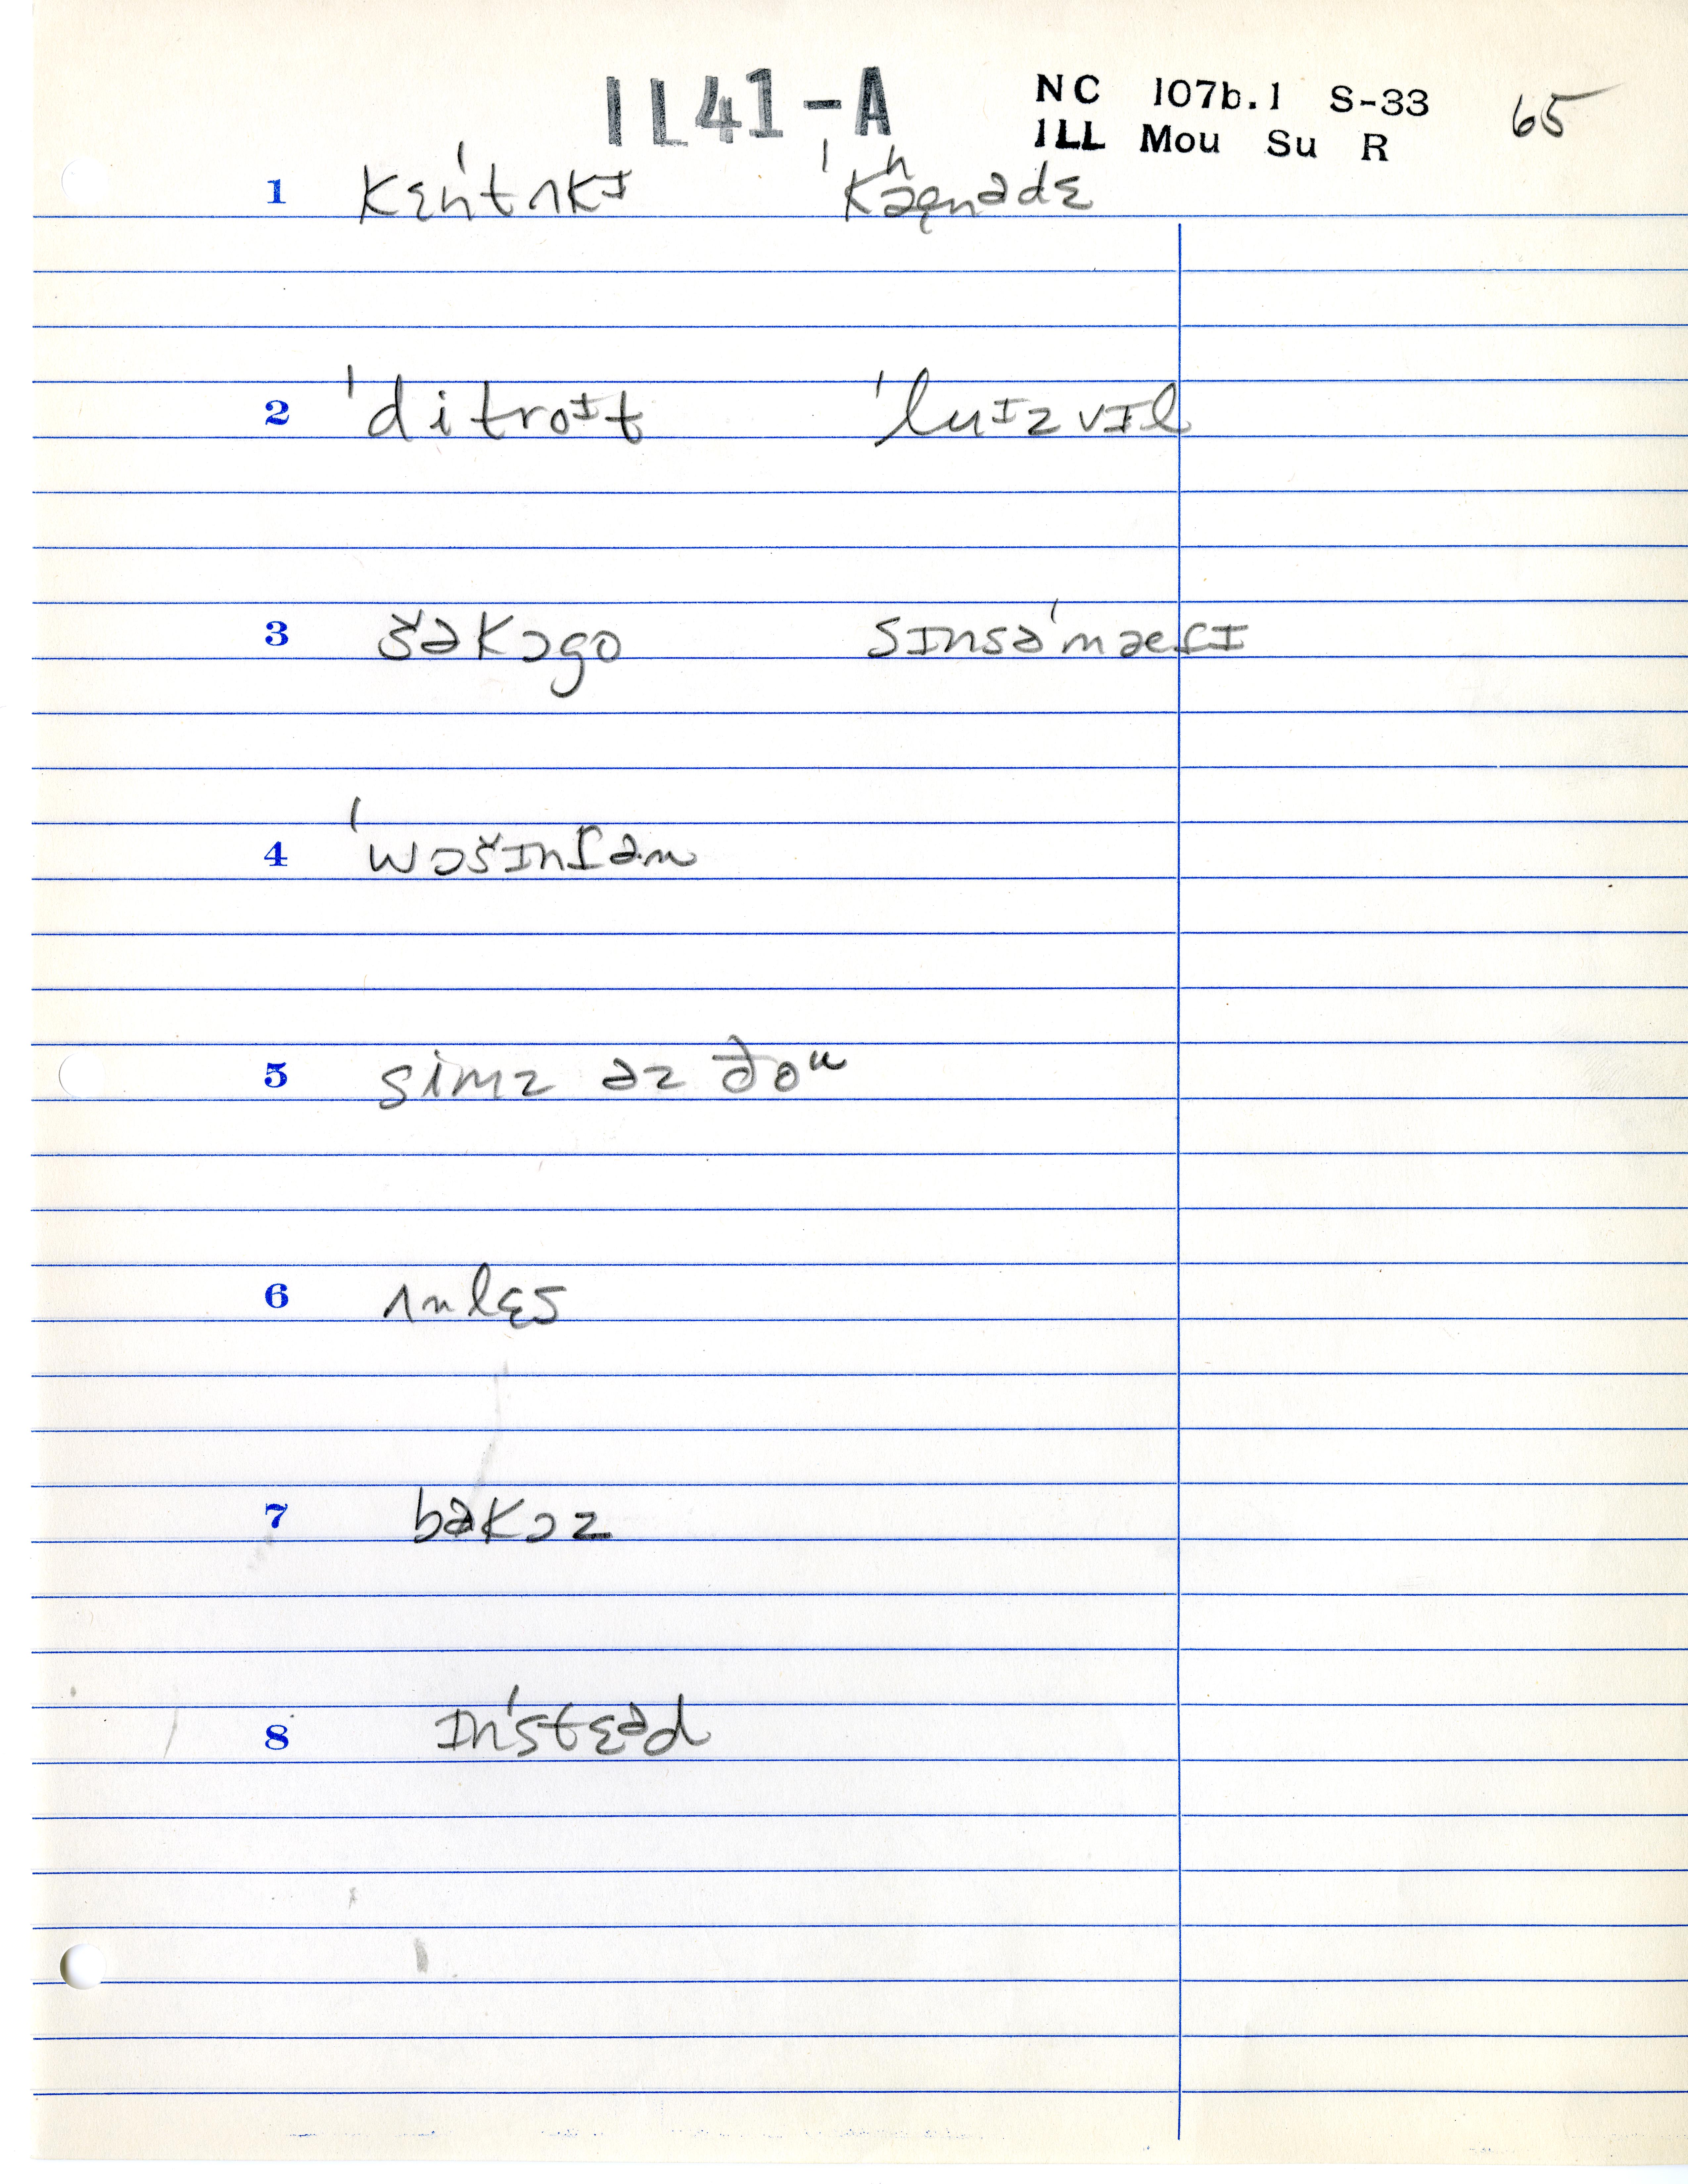 IL41-A
NC 107b.1 S-33 65
ILL Mou Su R
1 kɛn'tʌkɪ 'kʰæ̨nədɛ
2 'ditroɪt 'luɪzvɪl
3 šəkɔgo sɪnsə'næɾɪ
4 'wɔšɪnɾən
5 simz əz ðoᵘ
6 ʌnlɛs
7 bəkɔz
8 ɪn'stɛəd